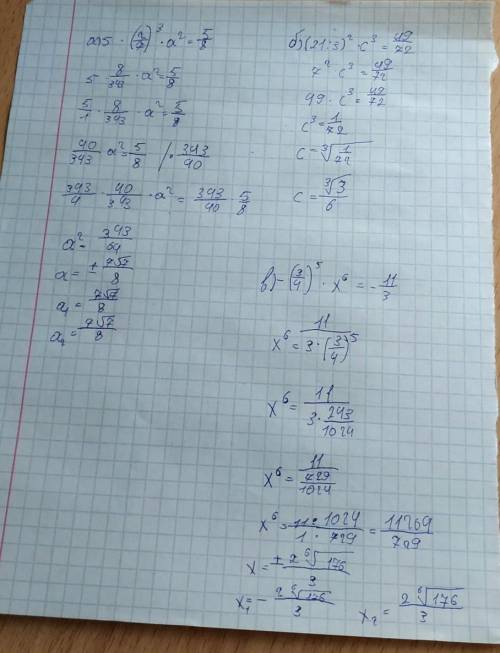 а) 5 · (2/7)³ · a² = 5/8
5 · 8/343 · a² = 5/8
5/1 · 8/343 · a² = 5/8
40/343 a² = 5/8 | · 343/40
343/4 · 40/343 · a² = 343/40 · 5/8
a² = 343/64
a = ± 7√7/8
a₁ = 7√7/8
a₂ = 7√7/8
б) (21:3)² · c³ = 49/72
7² · c³ = 49/72
49 · c³ = 49/72
c³ = 1/72
c = ∛(1/72)
c = ∛3/6
в) -(3/4)⁵ · x⁶ = - 11/3
x⁶ = 11/(3 · (3/4)⁵)
x⁶ = 11/(3 · 243/1024)
x⁶ = 11/(729/1024)
x⁶ = 11 · 1024/(1 · 729) = 11264/729
x = ± 2 ⁶√176/3
x₁ = - 2 ⁶√176/3
x₂ = 2 ⁶√176/3